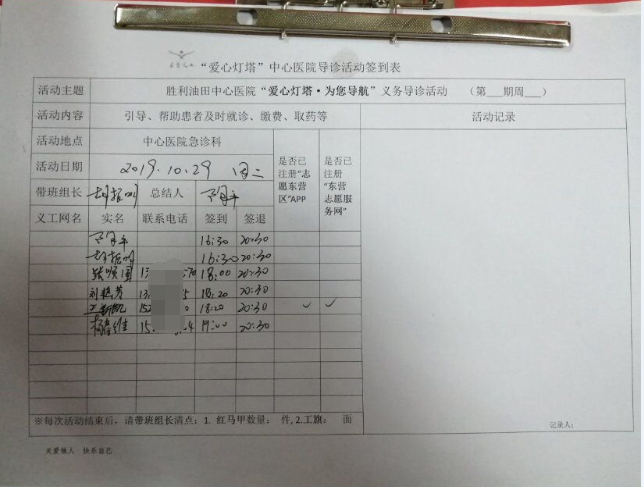 “爱心灯塔”中心医院导诊活动签到表
活动主题 胜利油田中心医院“爱心灯塔·为您导航”义务导诊活动 （第___期周___）
活动内容 引导、帮助患者及时就诊、缴费、取药等 活动记录
活动地点 中心医院急诊科
活动日期 2019.10.29 周二
是否已注册“志愿东营区”APP
是否已注册“东营志愿服务网”
带班组长 总结人
义工网名 实名 联系电话 签到 签退
16:30 20:30
16:30 20:30
张顺国 18:00 20:30
刘艳芳 18:20 20:30
王新凯 18:20 20:30 ✓ ✓
19:00 20:30
※每次活动结束后，请带班组长清点：1. 红马甲数量： 件，2.工旗： 面
记录人：
关爱他人 快乐自己